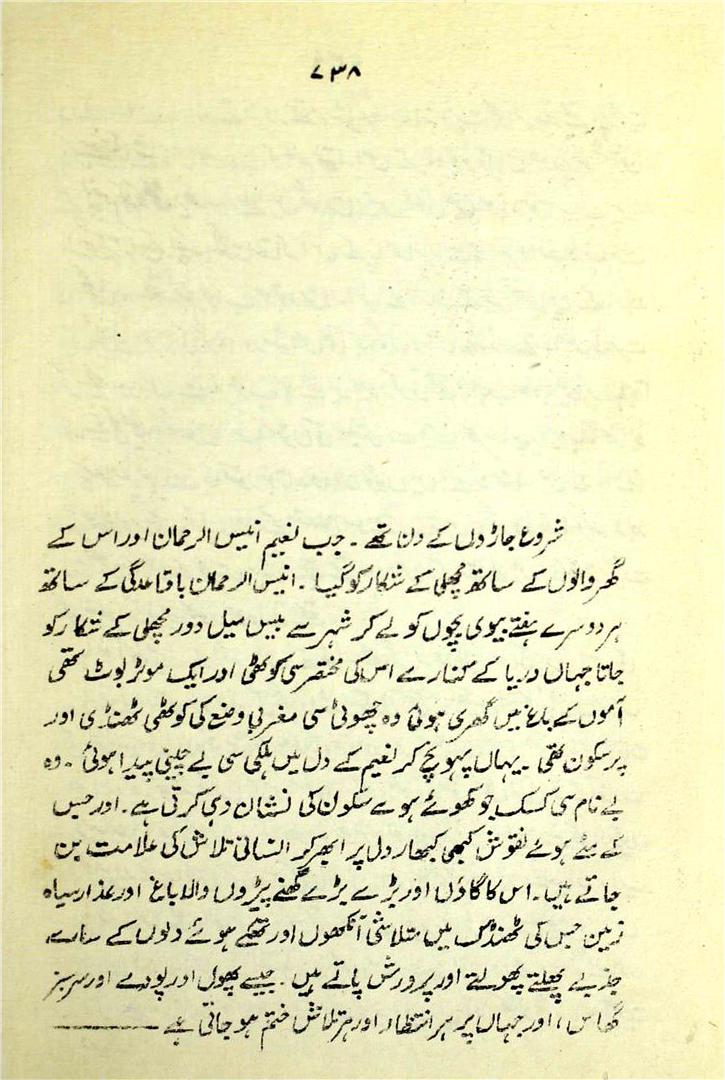 ۷۳۸
شروع جاڑوں کے دن تھے ۔ جب نعیم انیس الرحمان اور اس کے
گھر والوں کے ساتھ مچھلی کے شکار کو گیا ۔ انیس الرحمان باقاعدگی کے ساتھ
ہر دوسرے ہفتے بیوی بچوں کو لے کر شہر سے بیس میل دور مچھلی کے شکار کو
جاتا جہاں دریا کے کنارے اس کی مختصر سی کوٹھی اور ایک موٹر بوٹ تھی
آموں کے باغ میں گھری ہوئی وہ چھوٹی سی مغربی وضع کی کوٹھی ٹھنڈی اور
پر سکون تھی ۔ یہاں پہونچ کر نعیم کے دل میں ہلکی سی بے چینی پیدا ہوئی ۔ وہ
بے نام سی کسک جو کھوئے ہوے سکون کی نشان دہی کرتی ہے ۔ اور جس
کے مٹے ہوئے نقوش کبھی کبھار دل پر ابھر کر انسانی تلاش کی علامت بن
جاتے ہیں ۔ اس کا گاؤں اور بڑے بڑے گھنے پیڑوں والا باغ اور عذار سیاہ
زمین جس کی ٹھنڈک میں متلاشی آنکھوں اور تھکے ہوئے دلوں کے سارے
جذبے پھلتے پھولتے اور پرورش پاتے ہیں ۔ جیسے پھول اور پودے اور سرسبز
گھاس ، اور جہاں پر ہر انتظار اور ہر تلاش ختم ہو جاتی ہے ———